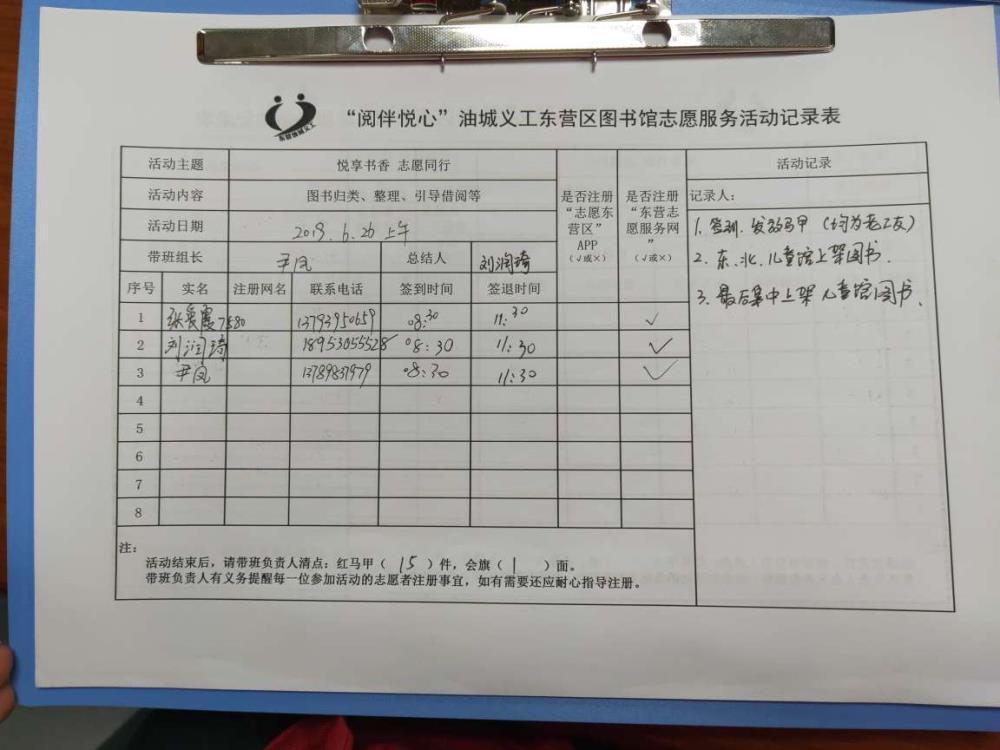 东营油城义工
“阅伴悦心”油城义工东营区图书馆志愿服务活动记录表
活动主题 悦享书香 志愿同行 是否注册“志愿东营区”APP（√或×） 是否注册“东营志愿服务网”（√或×） 活动记录
活动内容 图书归类、整理、引导借阅等 记录人：
活动日期 2019.6.26上午
带班组长 尹凤 总结人 刘润琦
序号 实名 注册网名 联系电话 签到时间 签退时间
1 张爱霞7580 13793950659 08:30 11:30 √
2 刘润琦 18953055528 08:30 11:30 √
3 尹凤 13789837979 08:30 11:30 √
4
5
6
7
8
1. 签到、发放马甲（均为老义友）
2. 东、北、儿童馆上架图书.
3. 最后集中上架儿童馆图书.
注：
活动结束后，请带班负责人清点：红马甲（ 15 ）件，会旗（ 1 ）面。
带班负责人有义务提醒每一位参加活动的志愿者注册事宜，如有需要还应耐心指导注册。